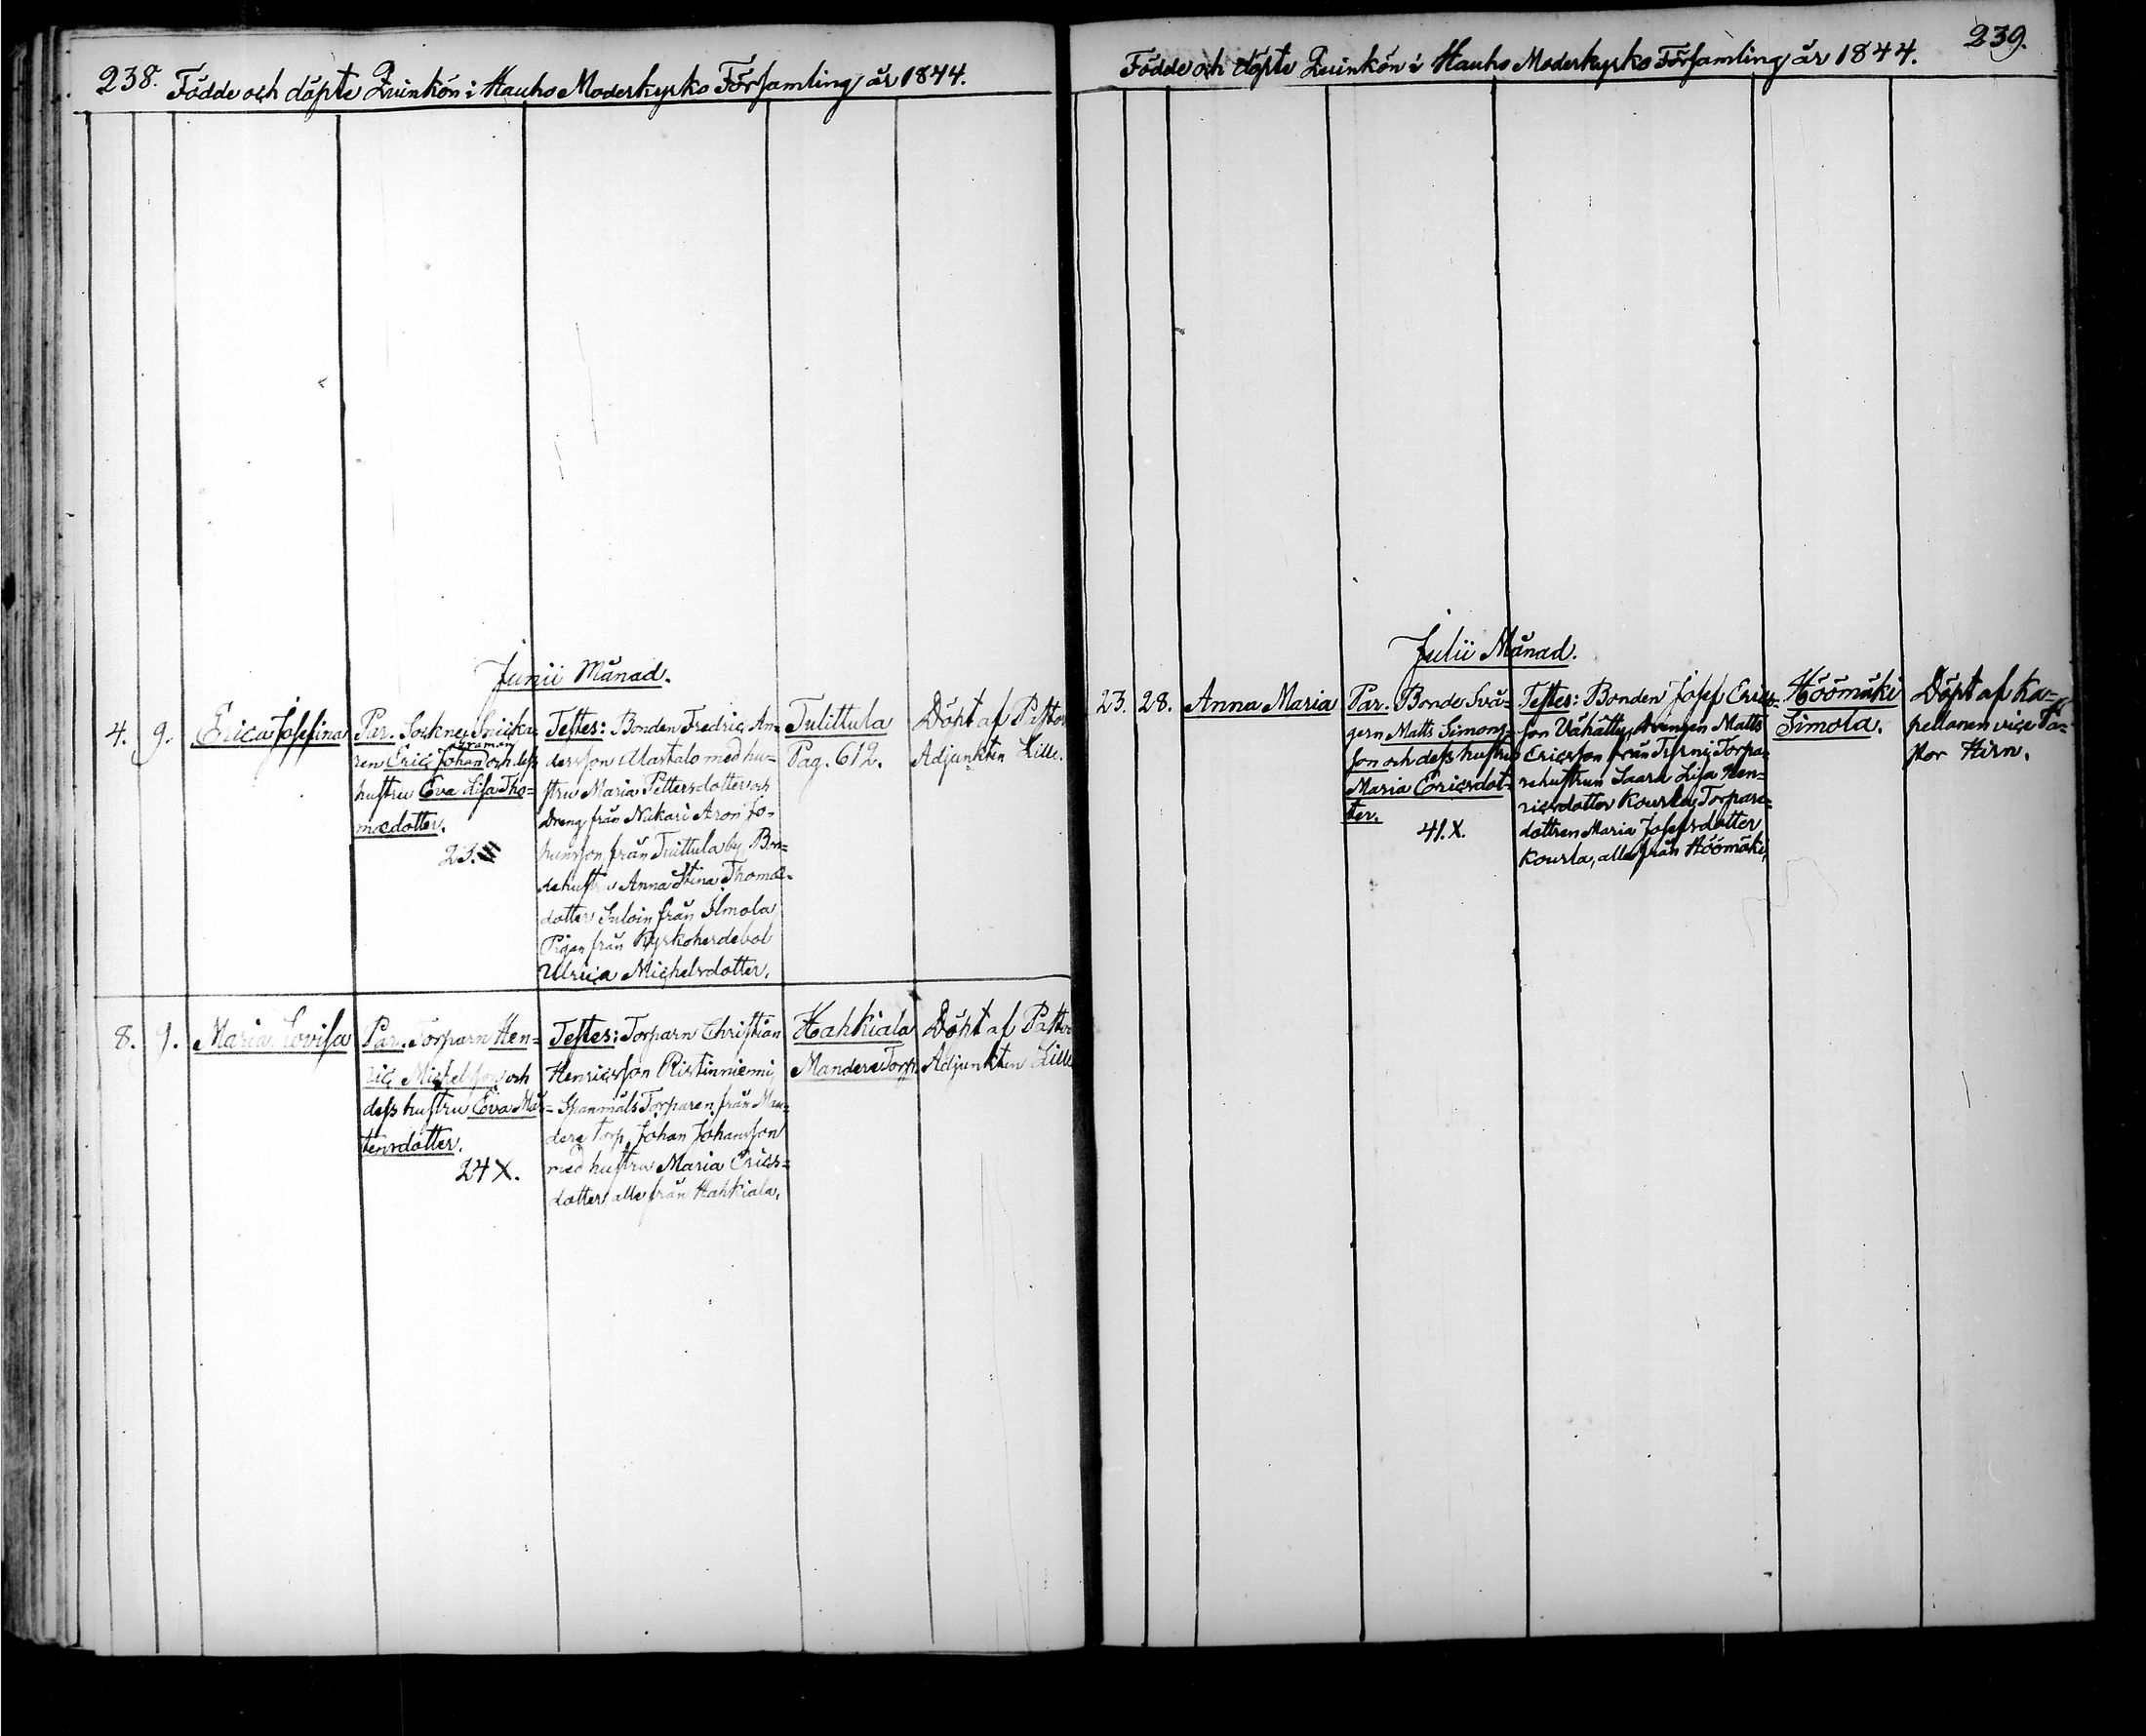 238. Födde och döpte Quinkön i Hauho Moderkyrko Församling år 1844.
Junii Månad.
4. 9. Erica Josefina
Par. Sockne Snicka
ren Eric Johan och dess
hustru Eva Lisa Tho=
masdotter.
23.
Testes: Bonden Fredric An=
dersson Uastalo med hu=
stru Maria Pettersdotter och
Dreng från Nukari Aron Jo=
hansson från Tuittula by, Bon=
dehustru Anna Stina Thomæ=
dotter från Ilmola
Pigan från Kyrkoherdebol
Ulrica Michelsdotter.
Tulittula
Pag. 612.
Döpt af Pastor
Adjunkten Lille.
8. 9. Maria Lovisa
Par. Torparn Hen=
ric Michelsson och
dess hustru Eva Mår=
tensdotter.
24 X.
Testes: Torparn Christian
Henricsson Ristinniemi,
Spanmåls Torparen från Man=
dere Torp, Johan Johansson
med hustru Maria Erics=
dotter, alle från Hahkiala.
Hahkiala
Mandere Torp.
Döpt af Pastor
Adjunkten Lille
239.
Födde och döpte Quinkön i Hauho Moderkyrko Församling år 1844.
Julii Månad.
23. 28. Anna Maria
Par. Bonde Svå=
gern Matts Simons=
son och dess hustru
Maria Ericsdot=
ter.
41. X.
Testes: Bonden Josef Erics=
son Vähätty, Drengen Matts
Ericsson från Torpa=
rehustrun Saara Lisa Hen=
ricsdotter Kourla, Torpare=
dottren Maria Josefsdotter
Kourla, alle från Höömäki,
Höömäki
Simola.
Döpt af Ka=
pellanen vice Pa=
stor Hirn.